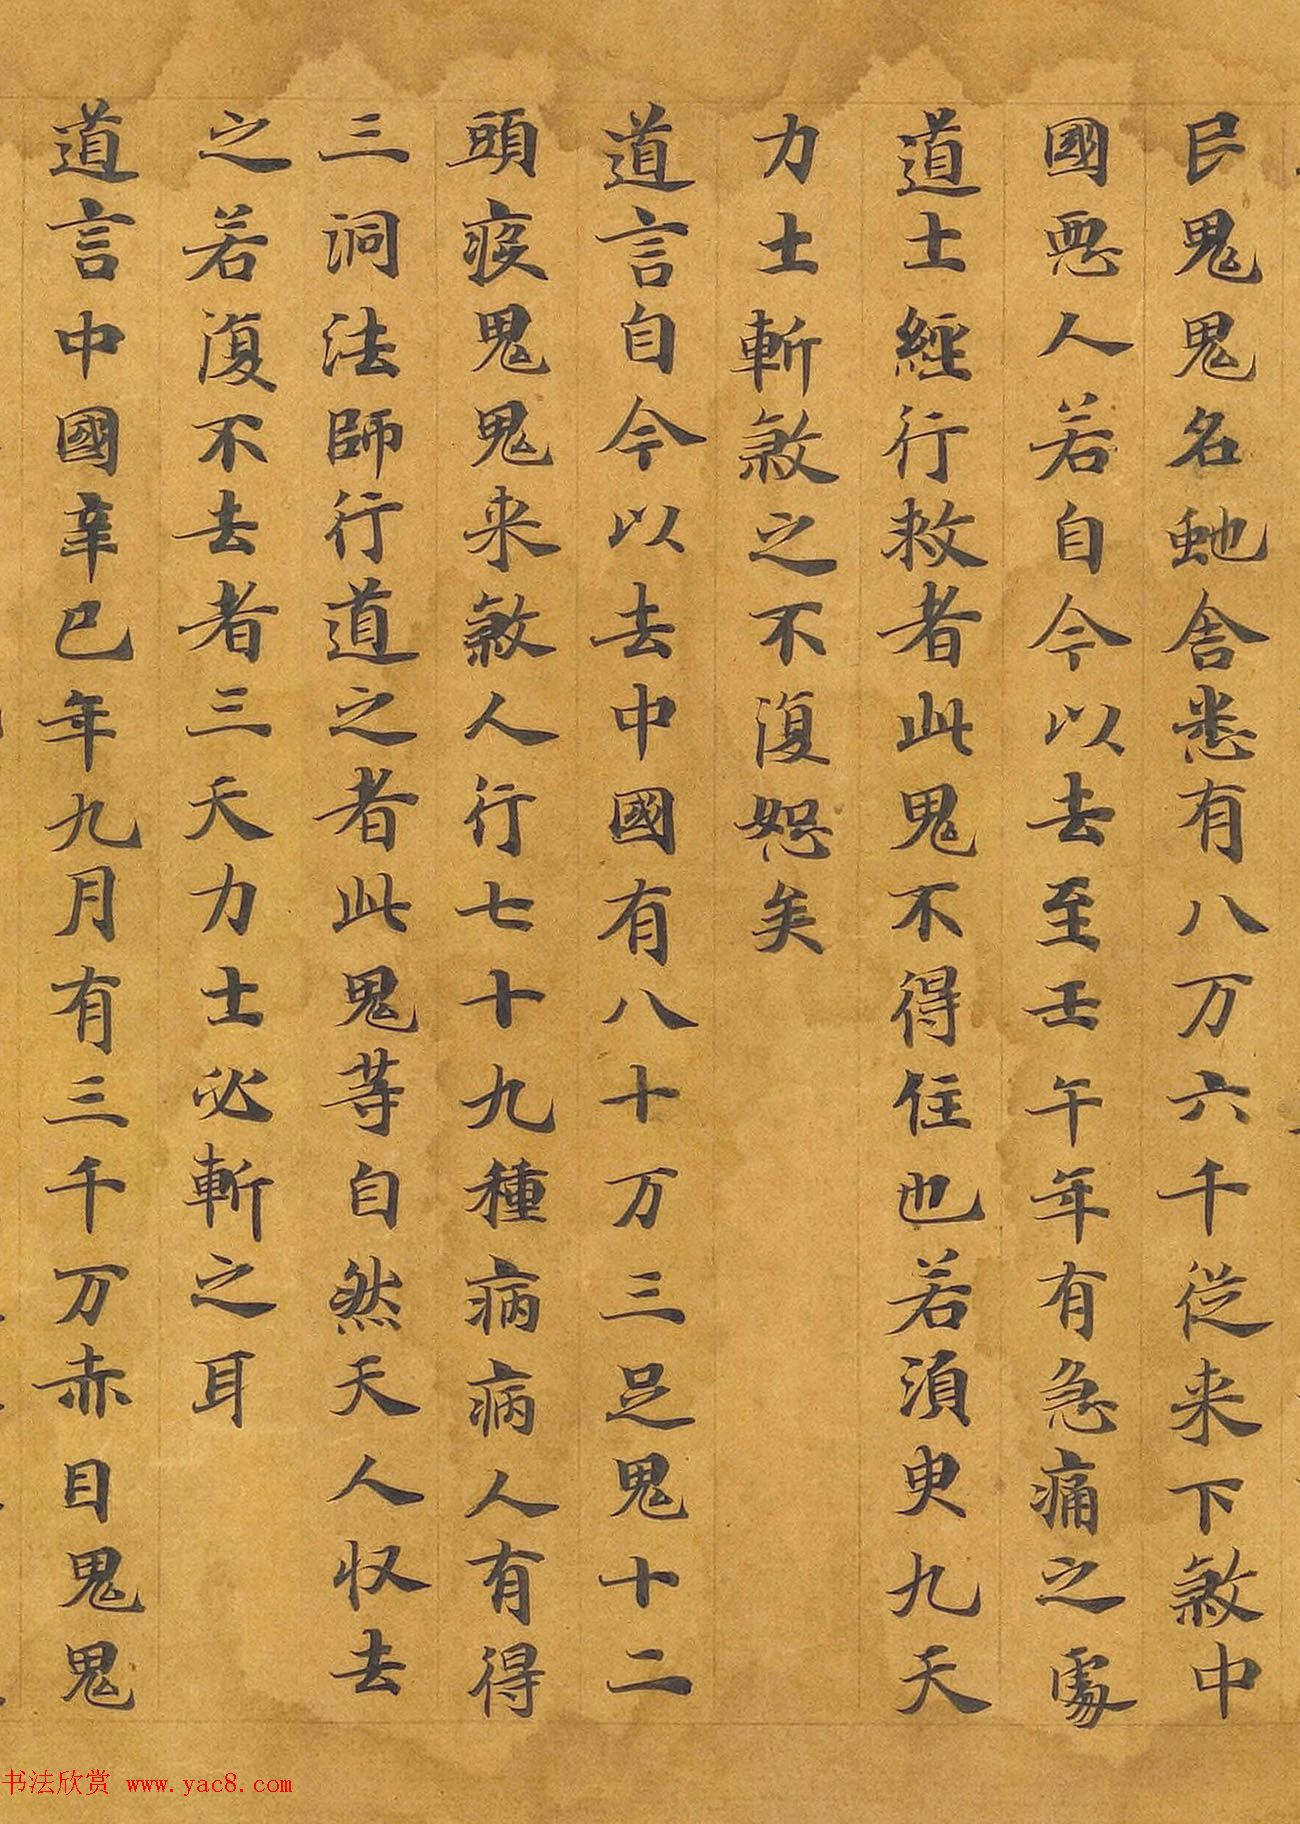 民鬼鬼名虵舍悉有八万六千从来下煞中
國惡人若自今以去至壬午年有急痛之處
道士經行救者此鬼不得住也若湏臾九天
力士斬煞之不復恕矣
道言自今以去中國有八十万三足鬼十二
頭疫鬼鬼来煞人行七十九種病病人有得
三洞法師行道之者此鬼等自然天人收去
之若復不去者三天力士必斬之耳
道言中國辛巳年九月有三千万赤目鬼鬼
书法欣赏 www.yac8.com